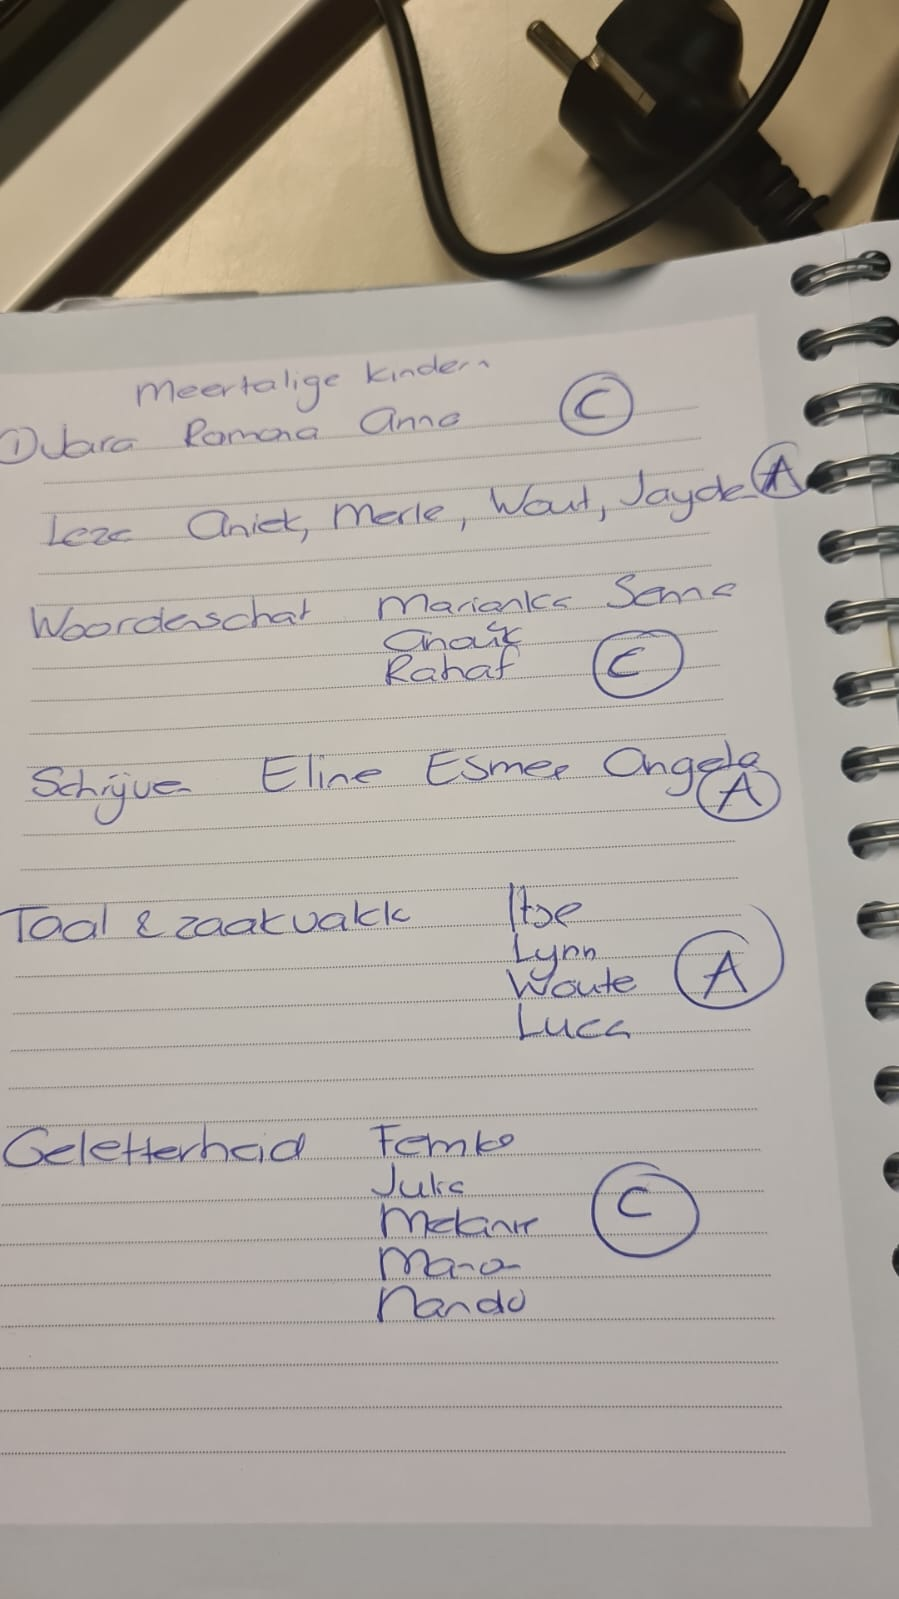 Meertalige kinderen
① Jara Romona Anne C
Leze Aniek, Merle, Wout, Jayde A
Woordenschat Marianka Senna
Anouk
Rahaf C
Schrijven Eline Esmee Angela
A
Taal & zaakvakk Itse
Lynn
Woute A
Luca
Geletterheid Femke
Julia
Melanie C
Nando